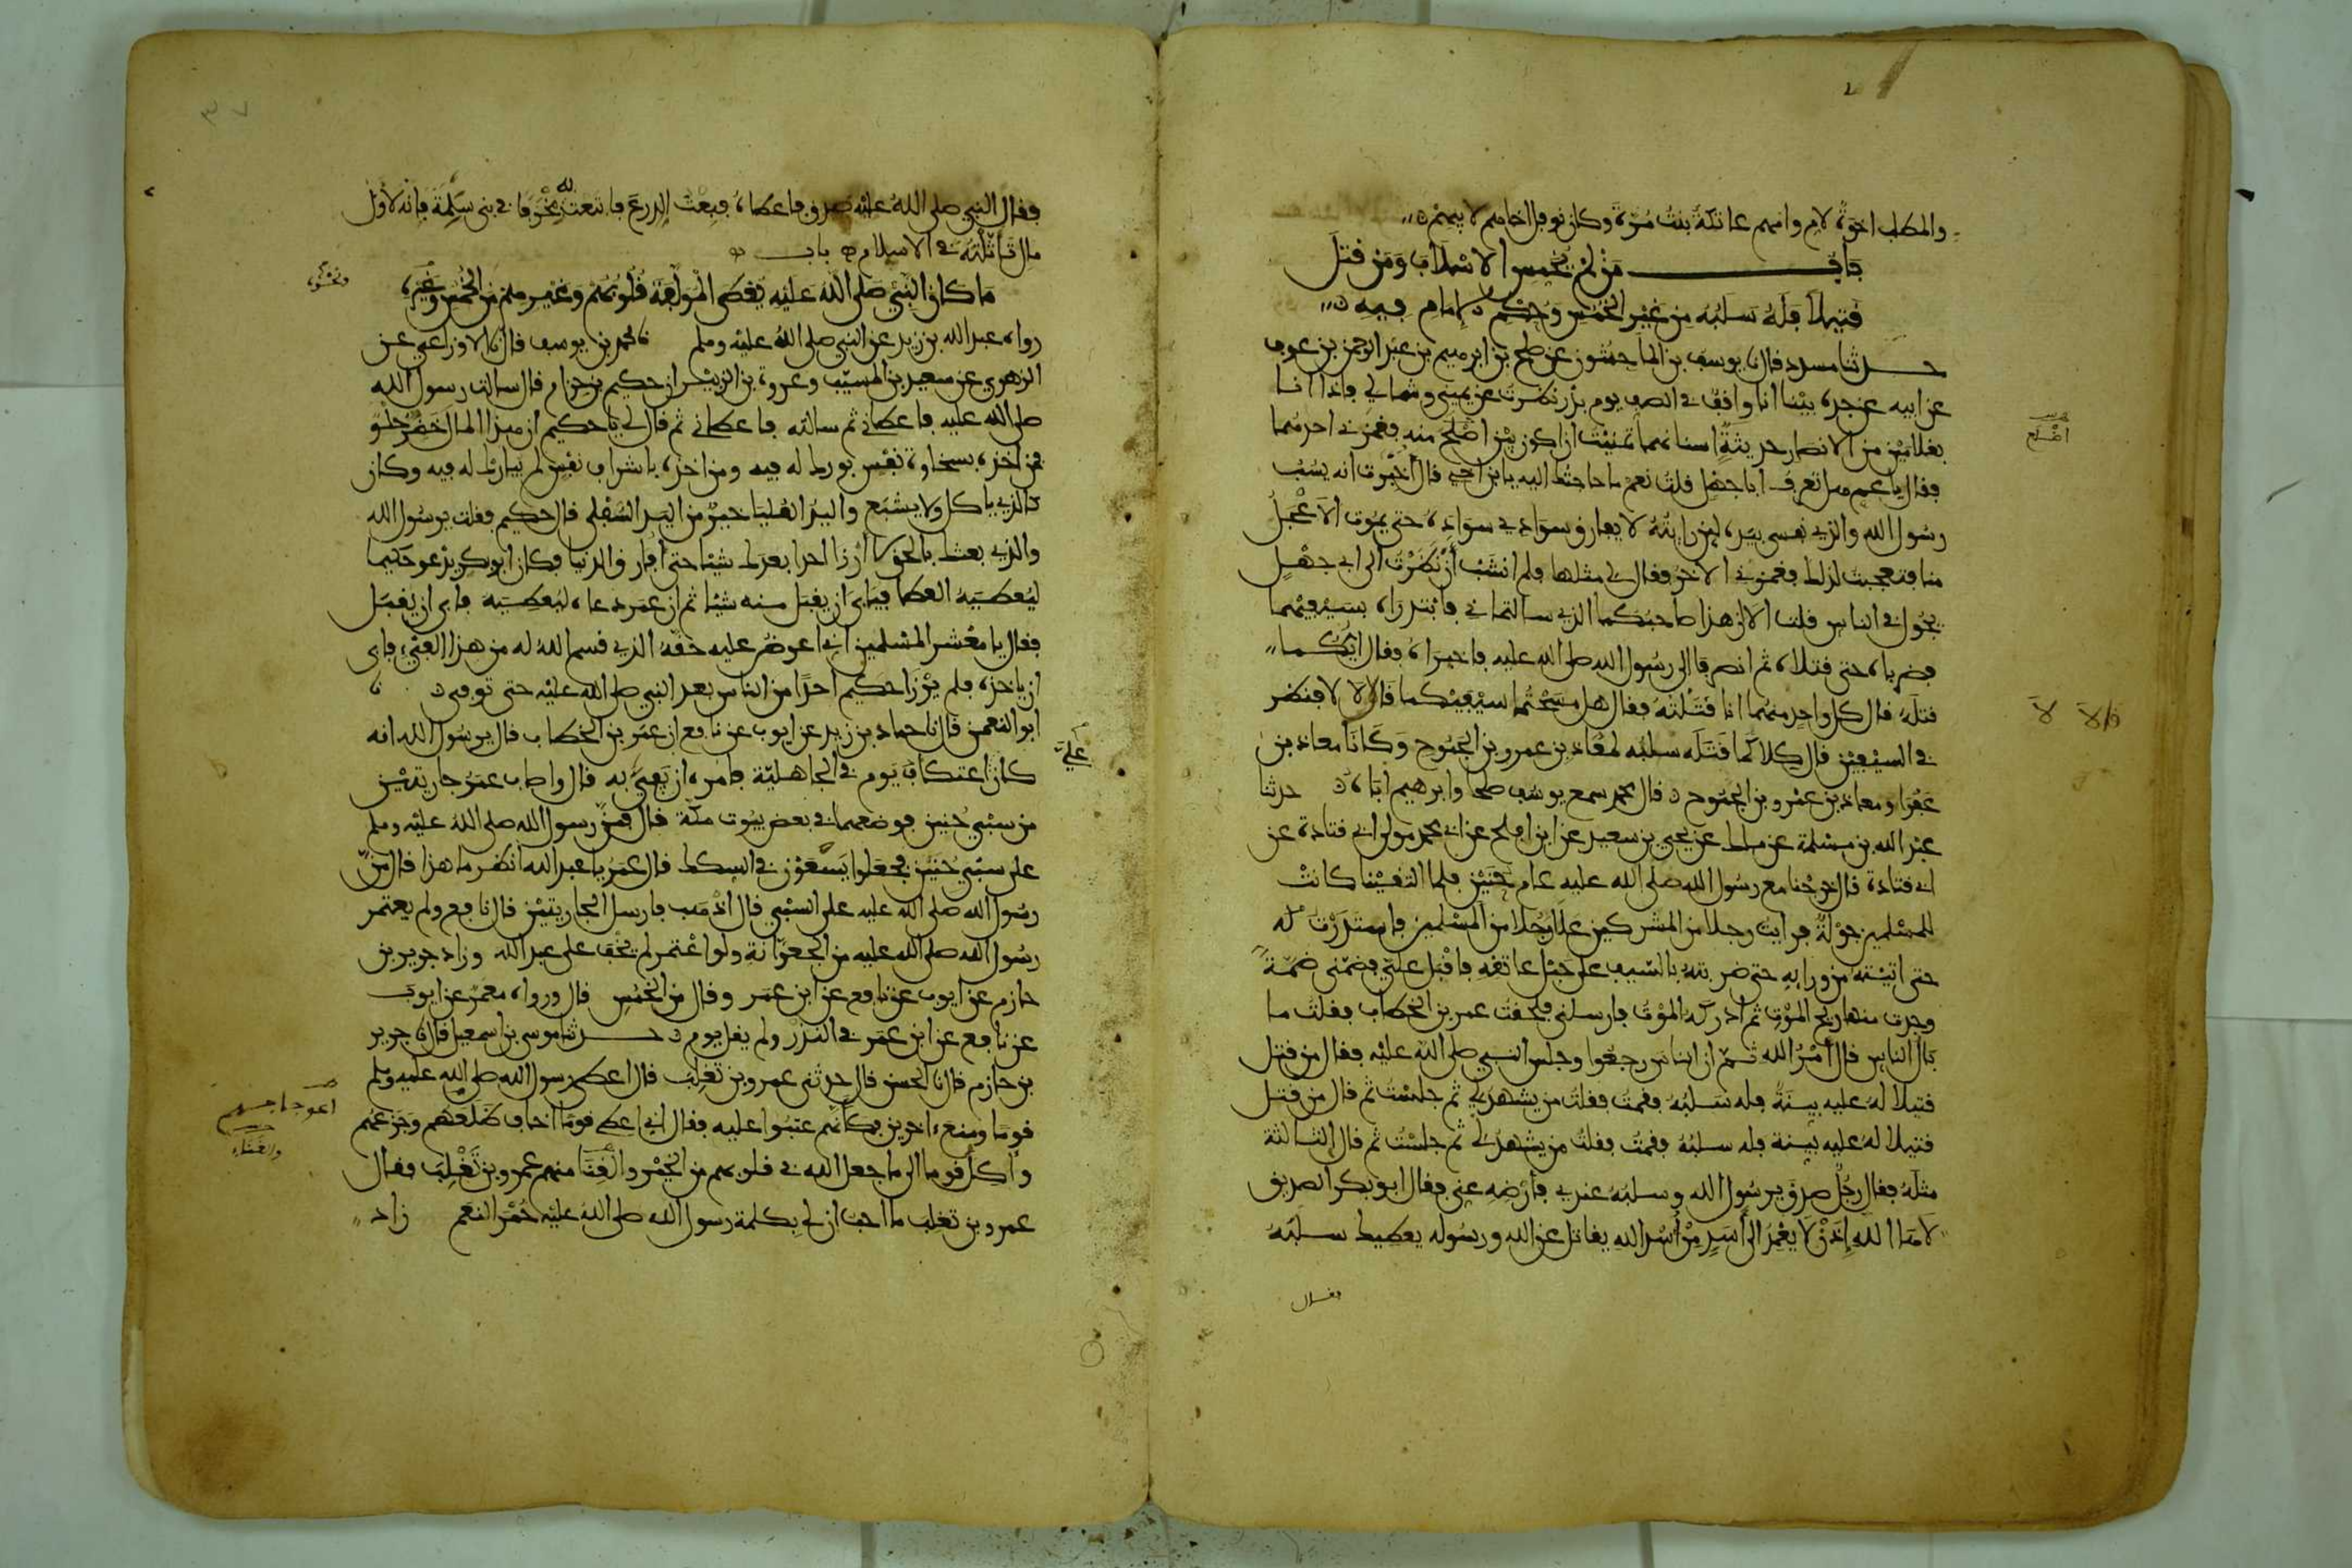 والمطلب اخوة لام وامهم عاتكة بنت مرة وكان نوفل اخاهم لابيهم
باب من لم يخمس الاسلاب ومن قتل
قتيلا فله سلبه من غير الخمس وحكم الامام فيه
حدثنا مسدد قال نا يوسف بن الماجشون عن صلح بن ابرهيم بن عبد الرحمن بن عوف
عن ابيه عن جده بينا انا واقف في الصف يوم بدر نظرت عن يميني وشمالي فاذا انا
بغلامين من الانصار حديثة اسنانهما تمنيت ان اكون بين اصلح منهما فغمزني احدهما
فقال يا عم هل تعرف ابا جهل قلت نعم ما حاجتك اليه يا بن اخي قال اخبرت انه يسب
رسول الله والذي نفسي بيده لين رايته لا يفارق سوادي سواده حتى يموت الاعجل
منا فتعجبت لذلك فغمزني الاخر فقال لي مثلها فلم انشب ان نظرت الى ابي جهل
يجول في الناس قلت الا ان هذا صاحبكما الذي سالتماني فابتدراه بسيفيهما
فضرباه حتى قتلاه ثم انصرفا الى رسول الله صلى الله عليه فاخبراه فقال ايكما
قتله قال كل واحد منهما انا قتلته فقال هل مسحتما سيفيكما قالا لا فنظر
في السيفين قال كلاكما قتله سلبه لمعاذ بن عمرو بن الجموح وكانا معاذ بن
عفرا ومعاذ بن عمرو بن الجموح قال محمد سمع يوسف صلحا وابرهيم اباه حدثنا
عبد الله بن مسلمة عن ملك عن يحيى بن سعيد عن ابن افلح عن ابي محمد مولى ابي قتادة عن
ابي قتادة قال خرجنا مع رسول الله صلى الله عليه عام حنين فلما التقينا كانت
للمسلمين جولة فرايت رجلا من المشركين علا رجلا من المسلمين فاستدرت له
حتى اتيته من ورايه حتى ضربته بالسيف على حبل عاتقه فاقبل علي فضمني ضمة
وجدت منها ريح الموت ثم ادركه الموت فارسلني فلحقت عمر بن الخطاب فقلت ما
بال الناس قال امر الله ثم ان الناس رجعوا وجلس النبي صلى الله عليه فقال من قتل
قتيلا له عليه بينة فله سلبه فقمت فقلت من يشهد لي ثم جلست ثم قال من قتل
قتيلا له عليه بينة فله سلبه فقمت فقلت من يشهد لي ثم جلست ثم قال الثالثة
مثله فقال رجل صدق يرسول الله وسلبه عندي فارضه عني فقال ابو بكر الصديق
لاها الله اذن لا يعمد الى اسد من اسد الله يقاتل عن الله ورسوله يعطيك سلبه
فقال
اضلع
قالا لا
فقال النبي صلى الله عليه صدق فاعطاه فبعت الدرع فابتعت به مخرفا في بني سلمة فانه لاول
مال تاثلته في الاسلام باب
ما كان النبي صلى الله عليه يعطي المولفة قلوبهم وغيرهم من الخمس وغيره
ونحوه
رواه عبد الله بن زيد عن النبي صلى الله عليه وسلم نا محمد بن يوسف قال نا الاوزاعي عن
الزهري عن سعيد بن المسيب وعروة بن الزبير ان حكيم بن حزام قال سالت رسول الله
صلى الله عليه فاعطاني ثم سالته فاعطاني ثم قال لي يا حكيم ان هذا المال خضر حلو
فمن اخذه بسخاوة نفس بورك له فيه ومن اخذه باشراف نفس لم يبارك له فيه وكان
كالذي ياكل ولا يشبع واليد العليا خير من اليد السفلى قال حكيم فقلت يرسول الله
والذي بعثك بالحق لا ارزا احدا بعدك شيئا حتى افارق الدنيا فكان ابو بكر يدعو حكيما
ليعطيه العطا فيابى ان يقبل منه شيئا ثم ان عمر دعاه ليعطيه فابى ان يقبل
فقال يا معشر المسلمين اني اعرض عليه حقه الذي قسم الله له من هذا الفيء فابى
ان ياخذه فلم يرزا حكيم احدا من الناس بعد النبي صلى الله عليه حتى توفي نا
ابو النعمن قال نا حماد بن زيد عن ايوب عن نافع ان عمر بن الخطاب قال يرسول الله انه
كان علي اعتكاف يوم في الجاهلية فامره ان يفي به قال واصاب عمر جاريتين
من سبي حنين فوضعهما في بعض بيوت مكة قال فمن رسول الله صلى الله عليه وسلم
على سبي حنين فجعلوا يسعون في السكك قال عمر يا عبد الله انظر ما هذا قال من
رسول الله صلى الله عليه على السبي قال اذهب فارسل الجاريتين قال نافع ولم يعتمر
رسول الله صلى الله عليه من الجعرانة ولو اعتمر لم يخف على عبد الله وزاد جرير بن
حازم عن ايوب عن نافع عن ابن عمر وقال من الخمس قال ورواه معمر عن ايوب
عن نافع عن ابن عمر في النذر ولم يقل يوم حدثنا موسى بن اسمعيل قال نا جرير
بن حازم قال نا الحسن قال حدثني عمرو بن تغلب قال اعطى رسول الله صلى الله عليه وسلم
قوما ومنع اخرين فكانهم عتبوا عليه فقال اني اعطي قوما اخاف ظلعهم وجزعهم
واكل قوما الى ما جعل الله في قلوبهم من الخير والغنا منهم عمرو بن تغلب فقال
والغناء
عمرو بن تغلب ما احب ان لي بكلمة رسول الله صلى الله عليه حمر النعم زاد